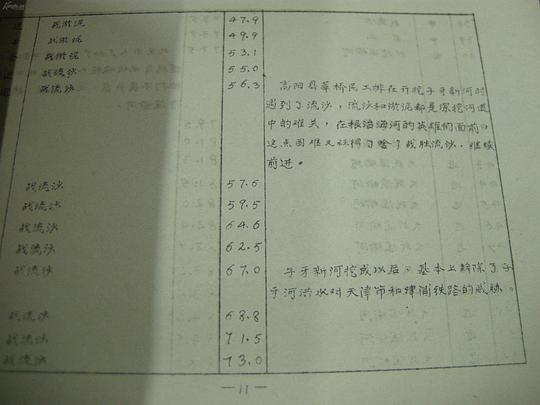 战淤泥 47.9
战淤泥 49.9
战淤泥 53.1
战流沙 55.0
战流沙 56.3 高阳县莘桥民工排在开挖子牙新河时
遇到了流沙，流沙和淤泥都是深挖河道
中的难关，在根治海河的英雄们面前，
这点困难又算得了什么？战胜流沙，继续
前进。
战流沙 57.6
战流沙 59.5
战流沙 64.6
战流沙 62.5
战流沙 67.0 子牙新河挖成以后，基本上解除了子
牙河洪水对天津市和津浦铁路的威胁。
战流沙 68.8
战流沙 71.5
战流沙 73.0
—11—